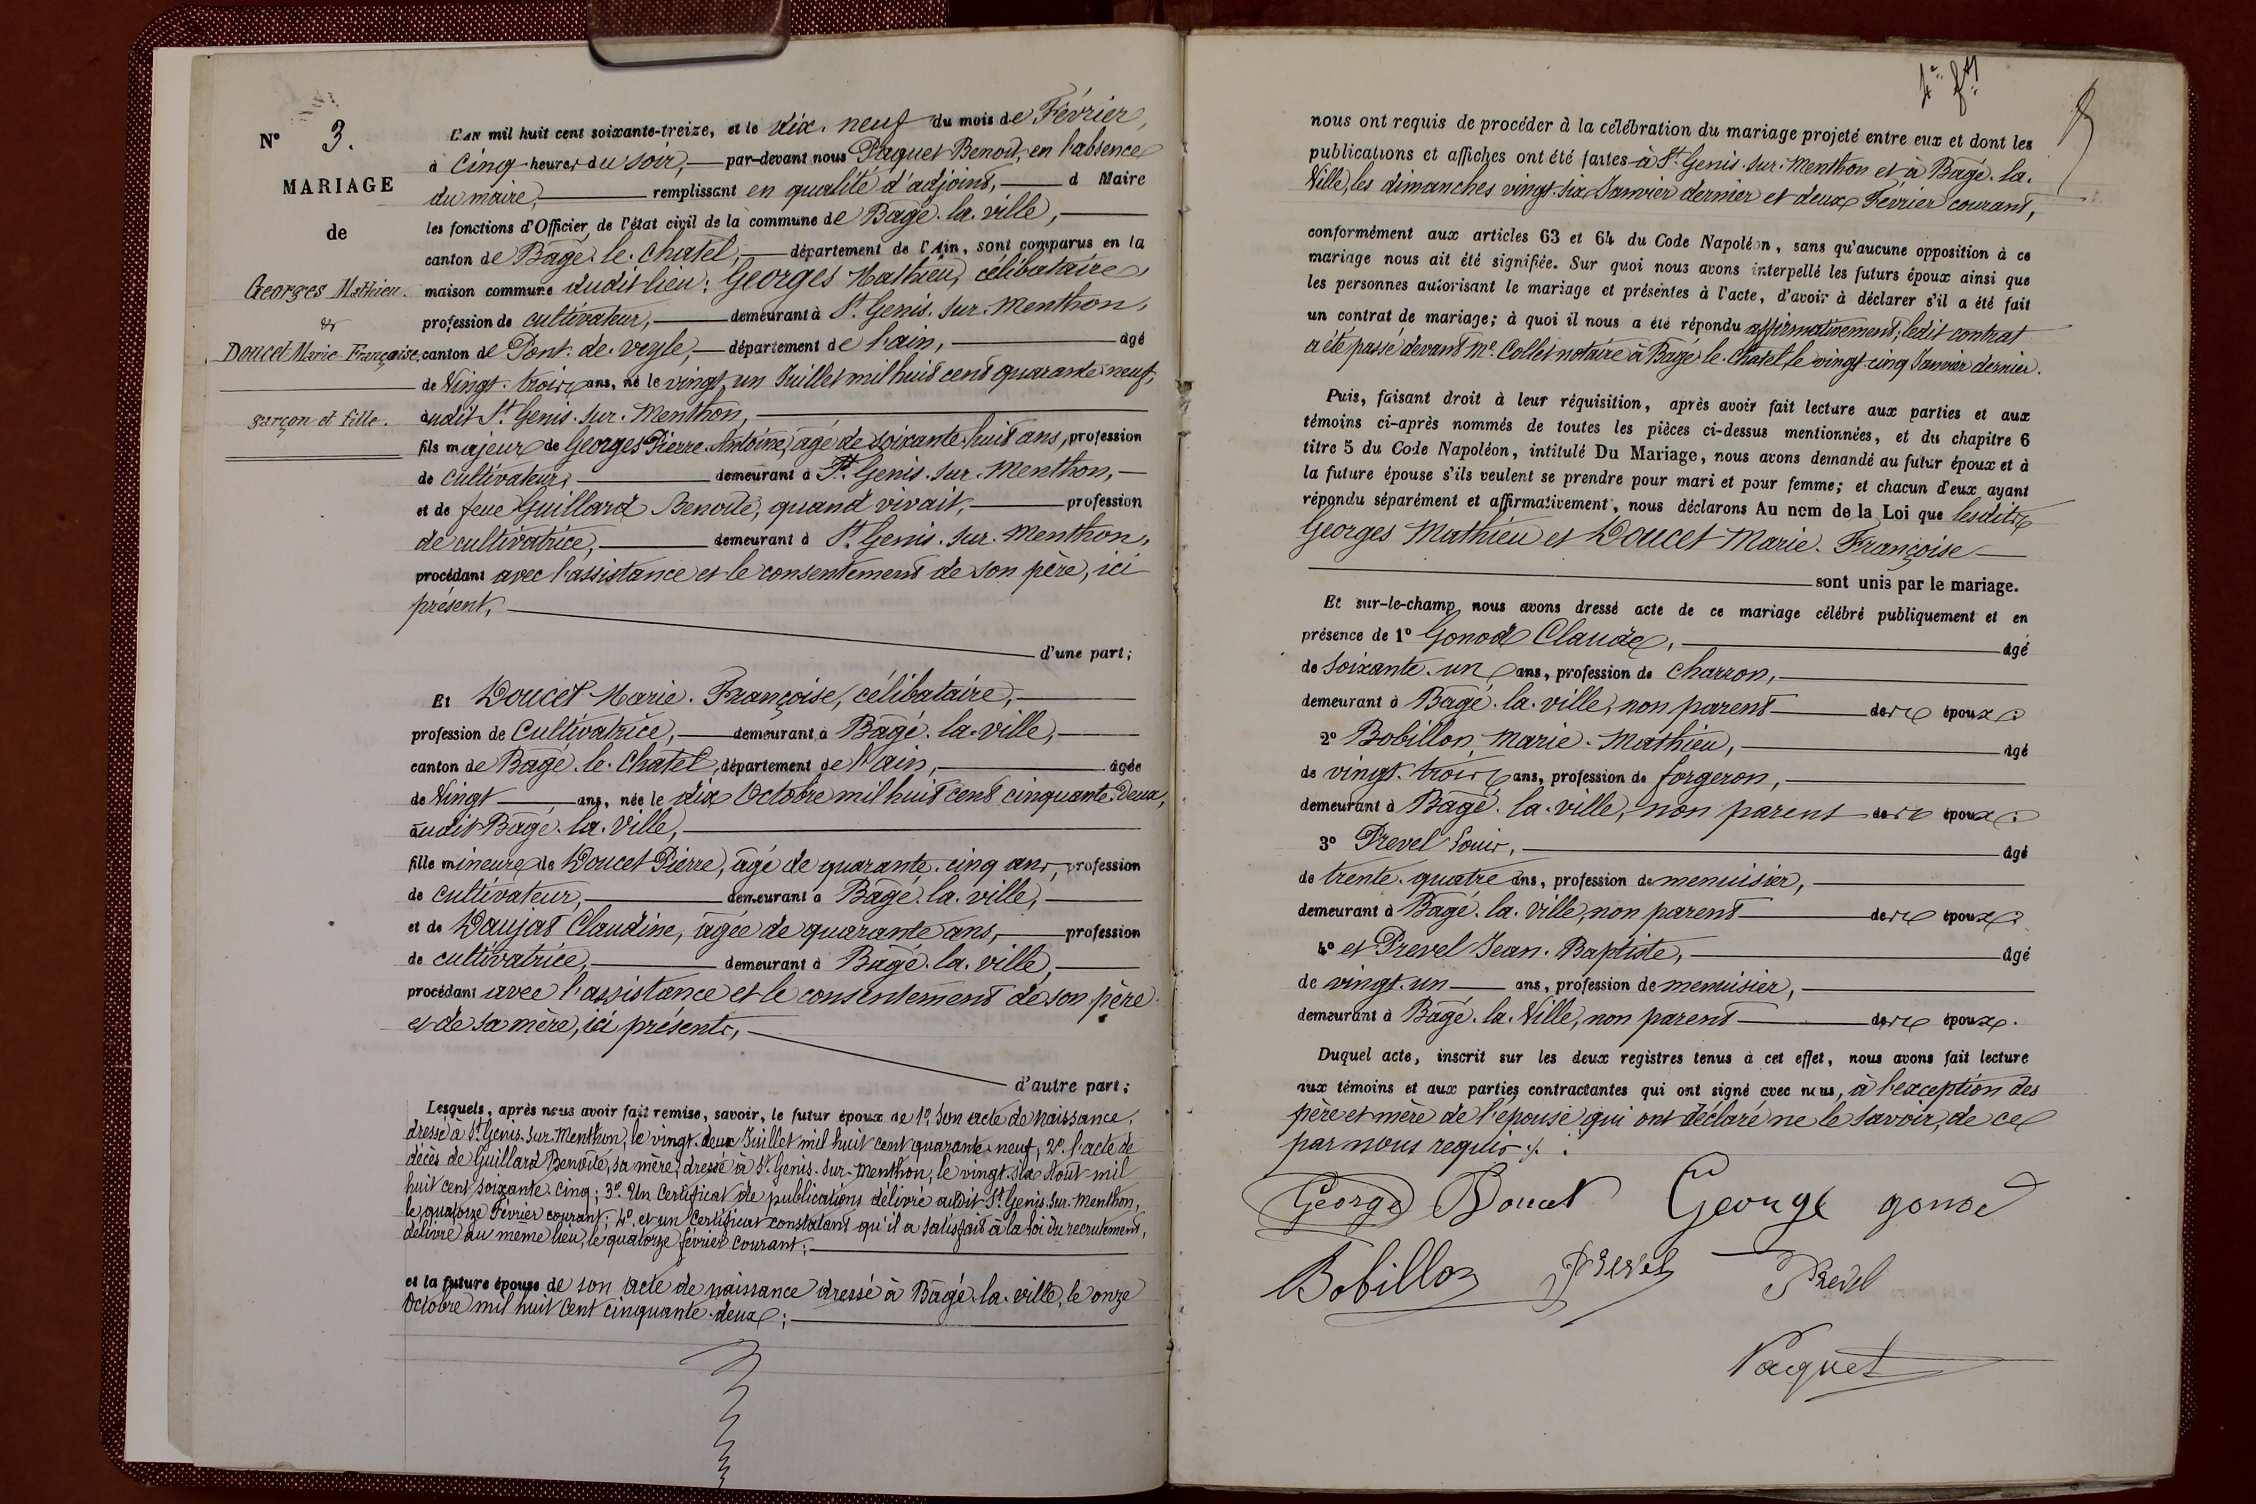 N° 3.
MARIAGE
de
Georges Mathieu.
&
Doucet Marie Françoise,
garçon et fille.
L'AN mil huit cent soixante-treize, et le dix-neuf du mois de Février,
à cinq heures du soir, par-devant nous Paquet Benoit, en l'absence
du maire, remplissant en qualité d'adjoint, d Maire
les fonctions d'Officier de l'état civil de la commune de Bâgé-la-ville,
canton de Bâgé-le-Chatel, département de l'Ain, sont comparus en la
maison commune dudit lieu: Georges Mathieu, célibataire,
profession de cultivateur, demeurant à St Genis-sur-Menthon,
canton de Pont-de-veyle, département de l'ain, âgé
de Vingt-trois ans, né le vingt-un Juillet mil huit cent quarante-neuf,
audit St Genis-sur-Menthon,
fils majeur de Georges Pierre-Antoine, âgé de soixante-huit ans, profession
de cultivateur, demeurant à St Genis-sur-Menthon,
et de feue Guillard Benoite, quand vivait, profession
de cultivatrice, demeurant à St Genis-sur-Menthon,
procédant avec l'assistance et le consentement de son père, ici
présent,
d'une part;
Et Doucet Marie-Françoise, célibataire,
profession de Cultivatrice, demeurant à Bâgé-la-ville,
canton de Bâgé-le-Chatel, département de l'ain, âgée
de Vingt ans, née le dix Octobre mil huit cent cinquante-deux,
audit Bâgé-la-Ville,
fille mineure de Doucet Pierre, âgé de quarante-cinq ans, profession
de cultivateur, demeurant à Bâgé-la-ville,
et de Daujat Claudine, âgée de quarante ans, profession
de cultivatrice, demeurant à Bâgé-la-ville,
procédant avec l'assistance et le consentement de son père
et de sa mère, ici présents,
d'autre part;
Lesquels, après nous avoir fait remise, savoir, le futur époux de 1° son acte de Naissance,
dressé à St Genis-sur-Menthon, le vingt-deux Juillet mil huit cent quarante-neuf; 2° l'acte de
décès de Guillard Benoite, sa mère, dressé à St Genis-sur-Menthon, le vingt-six Août mil
huit cent soixante-cinq; 3° Un certificat de publications délivré audit St Genis-sur-Menthon,
le quatorze Février courant; 4° et un Certificat constatant qu'il a satisfait à la loi du recrutement,
délivré au même lieu, le quatorze février courant;
et la future épouse de son acte de naissance dressé à Bâgé-la-ville, le onze
Octobre mil huit cent cinquante-deux;
nous ont requis de procéder à la célébration du mariage projeté entre eux et dont les
publications et affiches ont été faites à St Genis-sur-Menthon et à Bâgé-la-
Ville, les dimanches vingt-six Janvier dernier et deux Février courant,
conformément aux articles 63 et 64 du Code Napoléon, sans qu'aucune opposition à ce
mariage nous ait été signifiée. Sur quoi nous avons interpellé les futurs époux ainsi que
les personnes autorisant le mariage et présentes à l'acte, d'avoir à déclarer s'il a été fait
un contrat de mariage; à quoi il nous a été répondu affirmativement; ledit contrat
a été passé devant Me Collet notaire à Bâgé-le-Chatel, le vingt-cinq Janvier dernier.
Puis, faisant droit à leur réquisition, après avoir fait lecture aux parties et aux
témoins ci-après nommés de toutes les pièces ci-dessus mentionnées, et du chapitre 6
titre 5 du Code Napoléon, intitulé Du Mariage, nous avons demandé au futur époux et à
la future épouse s'ils veulent se prendre pour mari et pour femme; et chacun d'eux ayant
répondu séparément et affirmativement, nous déclarons Au nom de la Loi que lesdits
Georges Mathieu et Doucet Marie-Françoise
sont unis par le mariage.
Et sur-le-champ nous avons dressé acte de ce mariage célébré publiquement et en
présence de 1° Gonod Claude, âgé
de soixante-un ans, profession de charron,
demeurant à Bâgé-la-ville, non parent des époux;
2° Bobillon Marie-Mathieu, âgé
de vingt-trois ans, profession de forgeron,
demeurant à Bâgé-la-ville, non parent des époux;
3° Prevel Louis, âgé
de trente-quatre ans, profession de menuisier,
demeurant à Bâgé-la-Ville, non parent des époux;
4° et Prevel Jean-Baptiste, âgé
de vingt-un ans, profession de menuisier,
demeurant à Bâgé-la-Ville, non parent des époux.
Duquel acte, inscrit sur les deux registres tenus à cet effet, nous avons fait lecture
aux témoins et aux parties contractantes qui ont signé avec nous, à l'exception des
père et mère de l'épouse qui ont déclaré ne le savoir, de ce
par nous requis.
George Doucet George gonod
Bobillon Prevel Prevel
Paquet